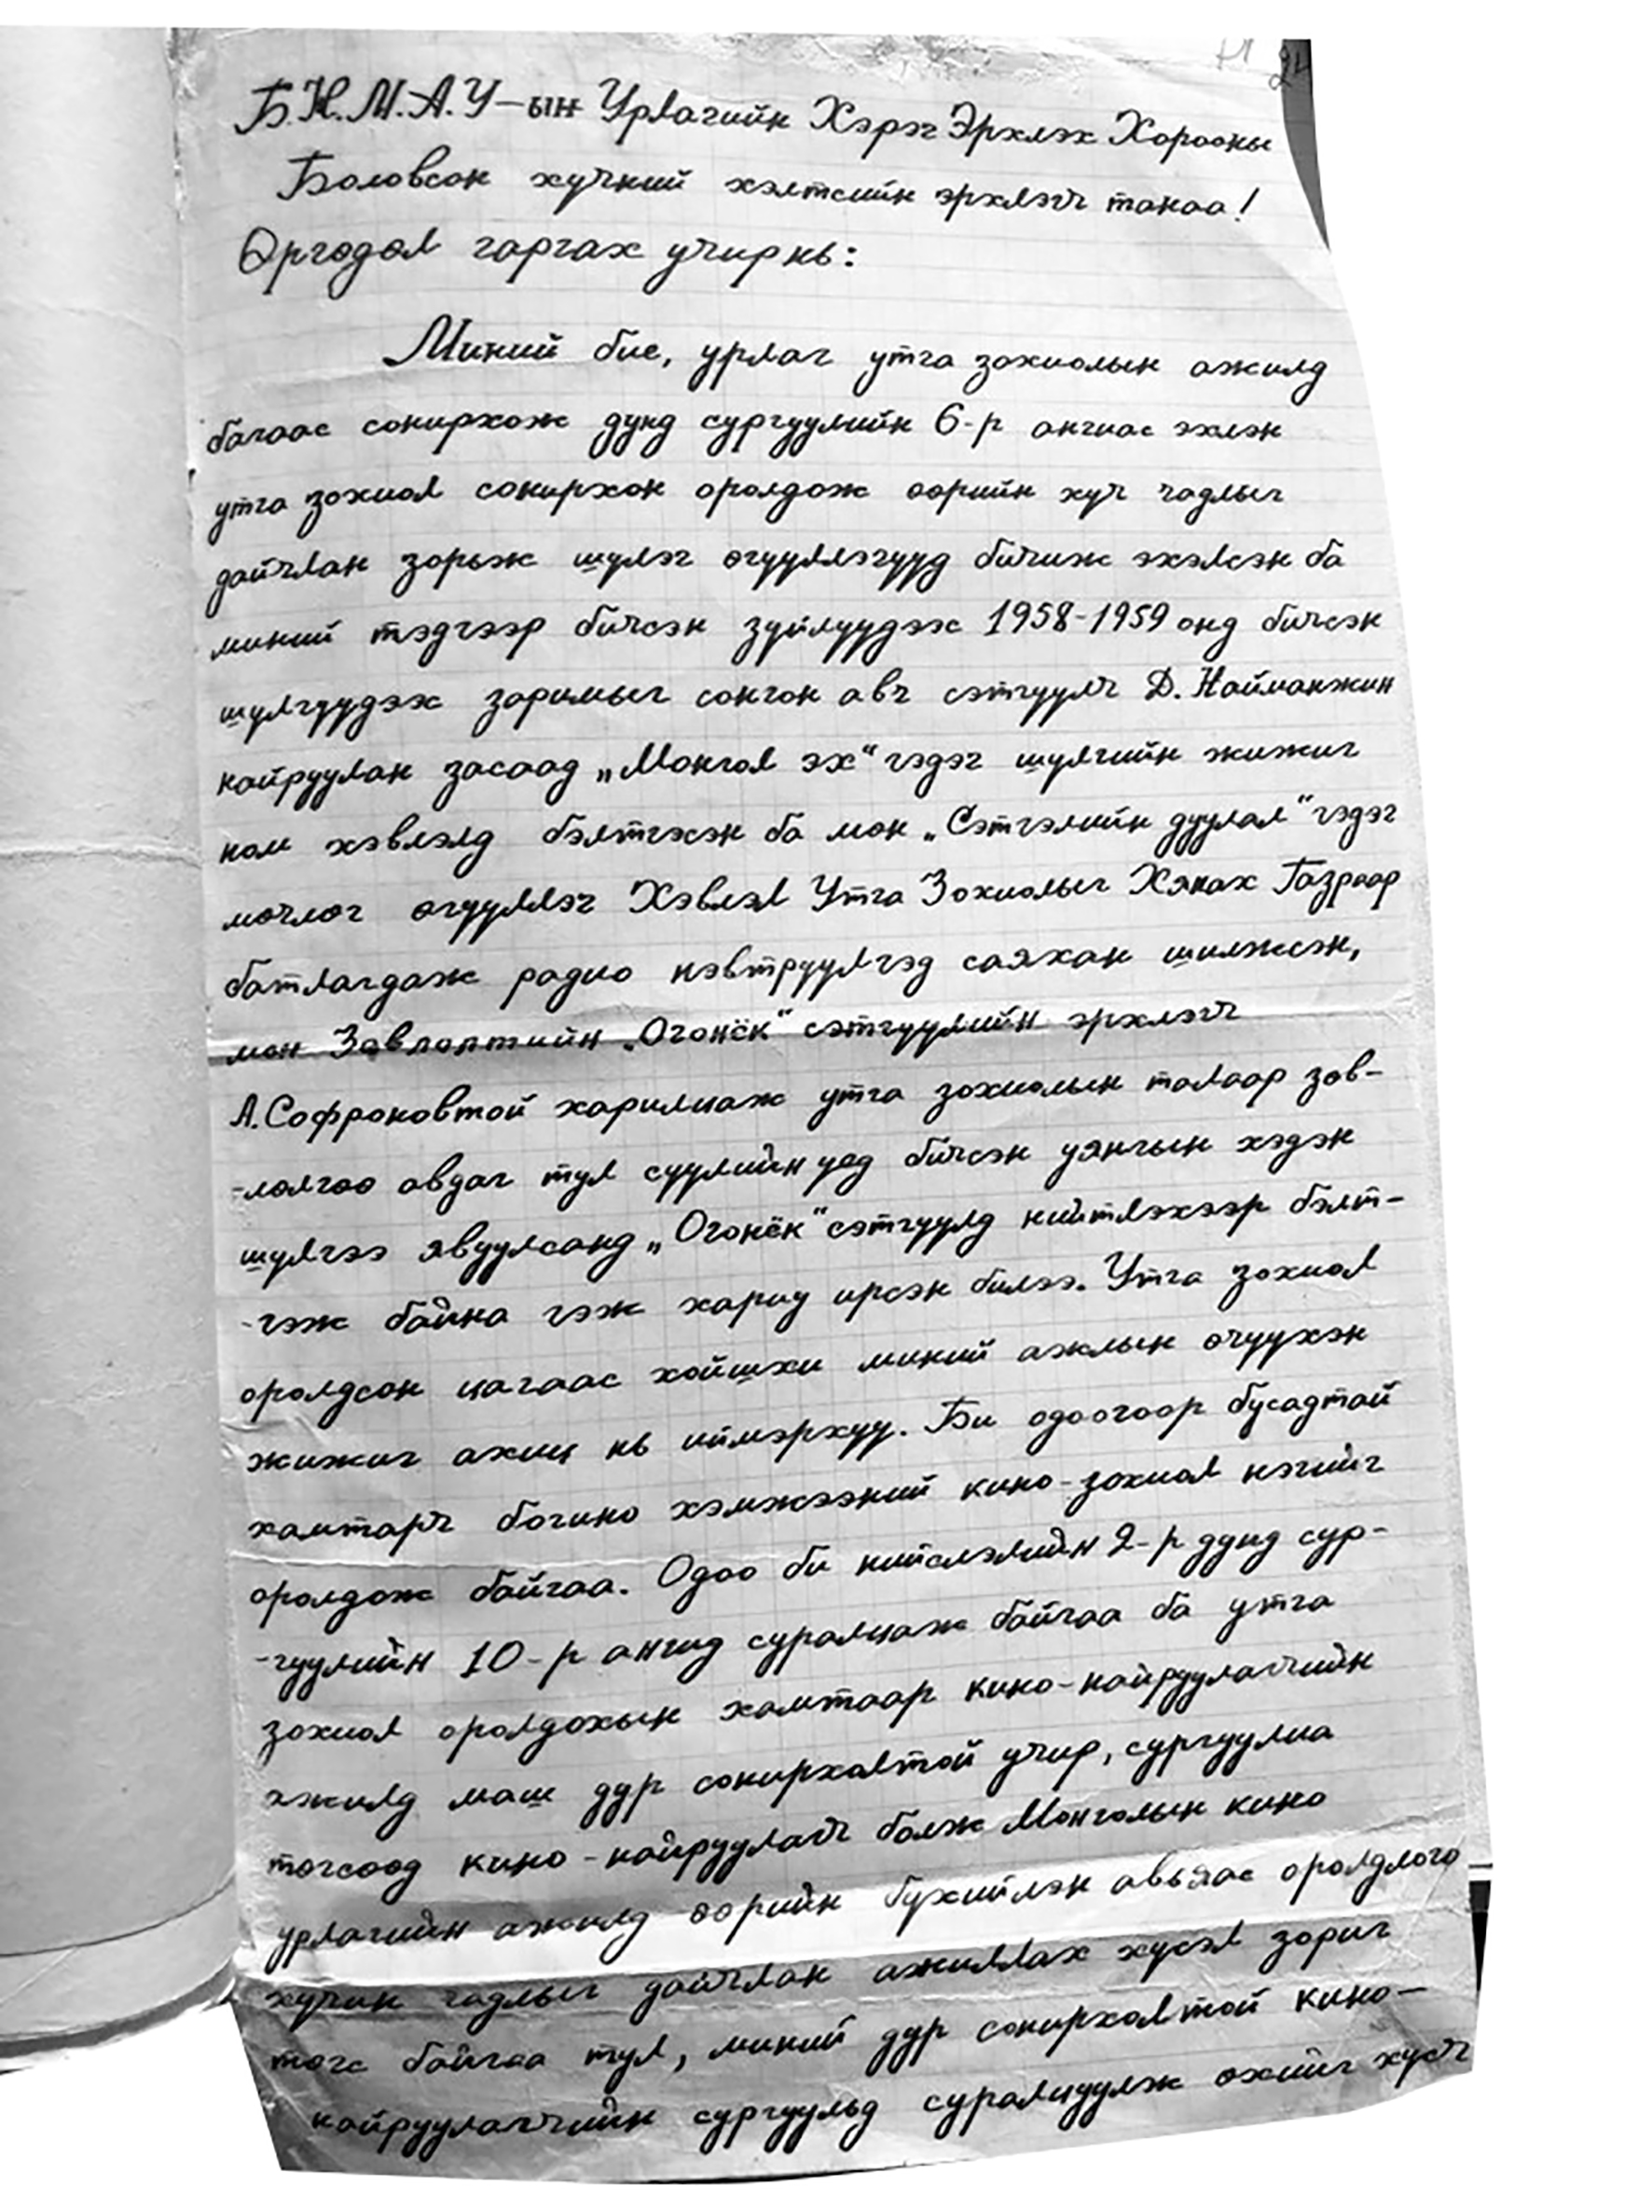 Б.Н.М.А.У-ын Урлагийн Хэрэг Эрхлэх Хорооны
Боловсон хүчний хэлтсийн эрхлэгч танаа!
Өргөдөл гаргах учир нь:
Миний бие, урлаг утга зохиолын ажилд
багаас сонирхож дунд сургуулийн 6-р ангиас эхлэн
утга зохиол сонирхон оролдож өөрийн хүч чадлыг
дайчлан зорьж шүлэг өгүүллэгүүд бичиж эхэлсэн ба
миний тэдгээр бичсэн зүйлүүдээс 1958-1959 онд бичсэн
шүлгүүдээс заримыг сонгон авч сэтгүүлч Д. Найманжин
найруулан засаад „Монгол эх“ гэдэг шүлгийн жижиг
ном хэвлэлд бэлтгэсэн ба мөн „Сэтгэлийн дуулал“ гэдэг
мөчлөг өгүүллэг Хэвлэл Утга Зохиолыг Хянах Газраар
батлагдаж радио нэвтрүүлгэд саяхан шилжсэн,
мөн Зөвлөлтийн „Огонёк“ сэтгүүлийн эрхлэгч
А.Софроновтой харилцаж утга зохиолын талаар зөв-
-лөлгөө авдаг тул сүүлийн үед бичсэн уянгын хэдэн
шүлгээ явуулсанд „Огонёк“ сэтгүүлд нийтлэхээр бэлт-
-гэж байна гэж хариу ирсэн билээ. Утга зохиол
оролдсон цагаас хойшхи миний ажлын өчүүхэн
жижиг ахиц нь иймэрхүү. Би одоогоор бусадтай
хамтарч богино хэмжээний кино-зохиол нэгийг
оролдож байгаа. Одоо би нийслэлийн 2-р дунд сур-
-гуулийн 10-р ангид суралцаж байгаа ба утга
зохиол оролдохын хамтаар кино-найруулагчийн
ажилд маш дур сонирхолтой учир, сургуулиа
төгсөөд кино-найруулагч болж Монголын кино
урлагийн ажилд өөрийн бүхийлэн авьяас оролдлого
хүчин чадлыг дайчлан ажиллах хүсэл зориг
төгс байгаа тул, миний дур сонирхолтой кино-
найруулагчийн сургуульд суралцуулж өхийг хүсч